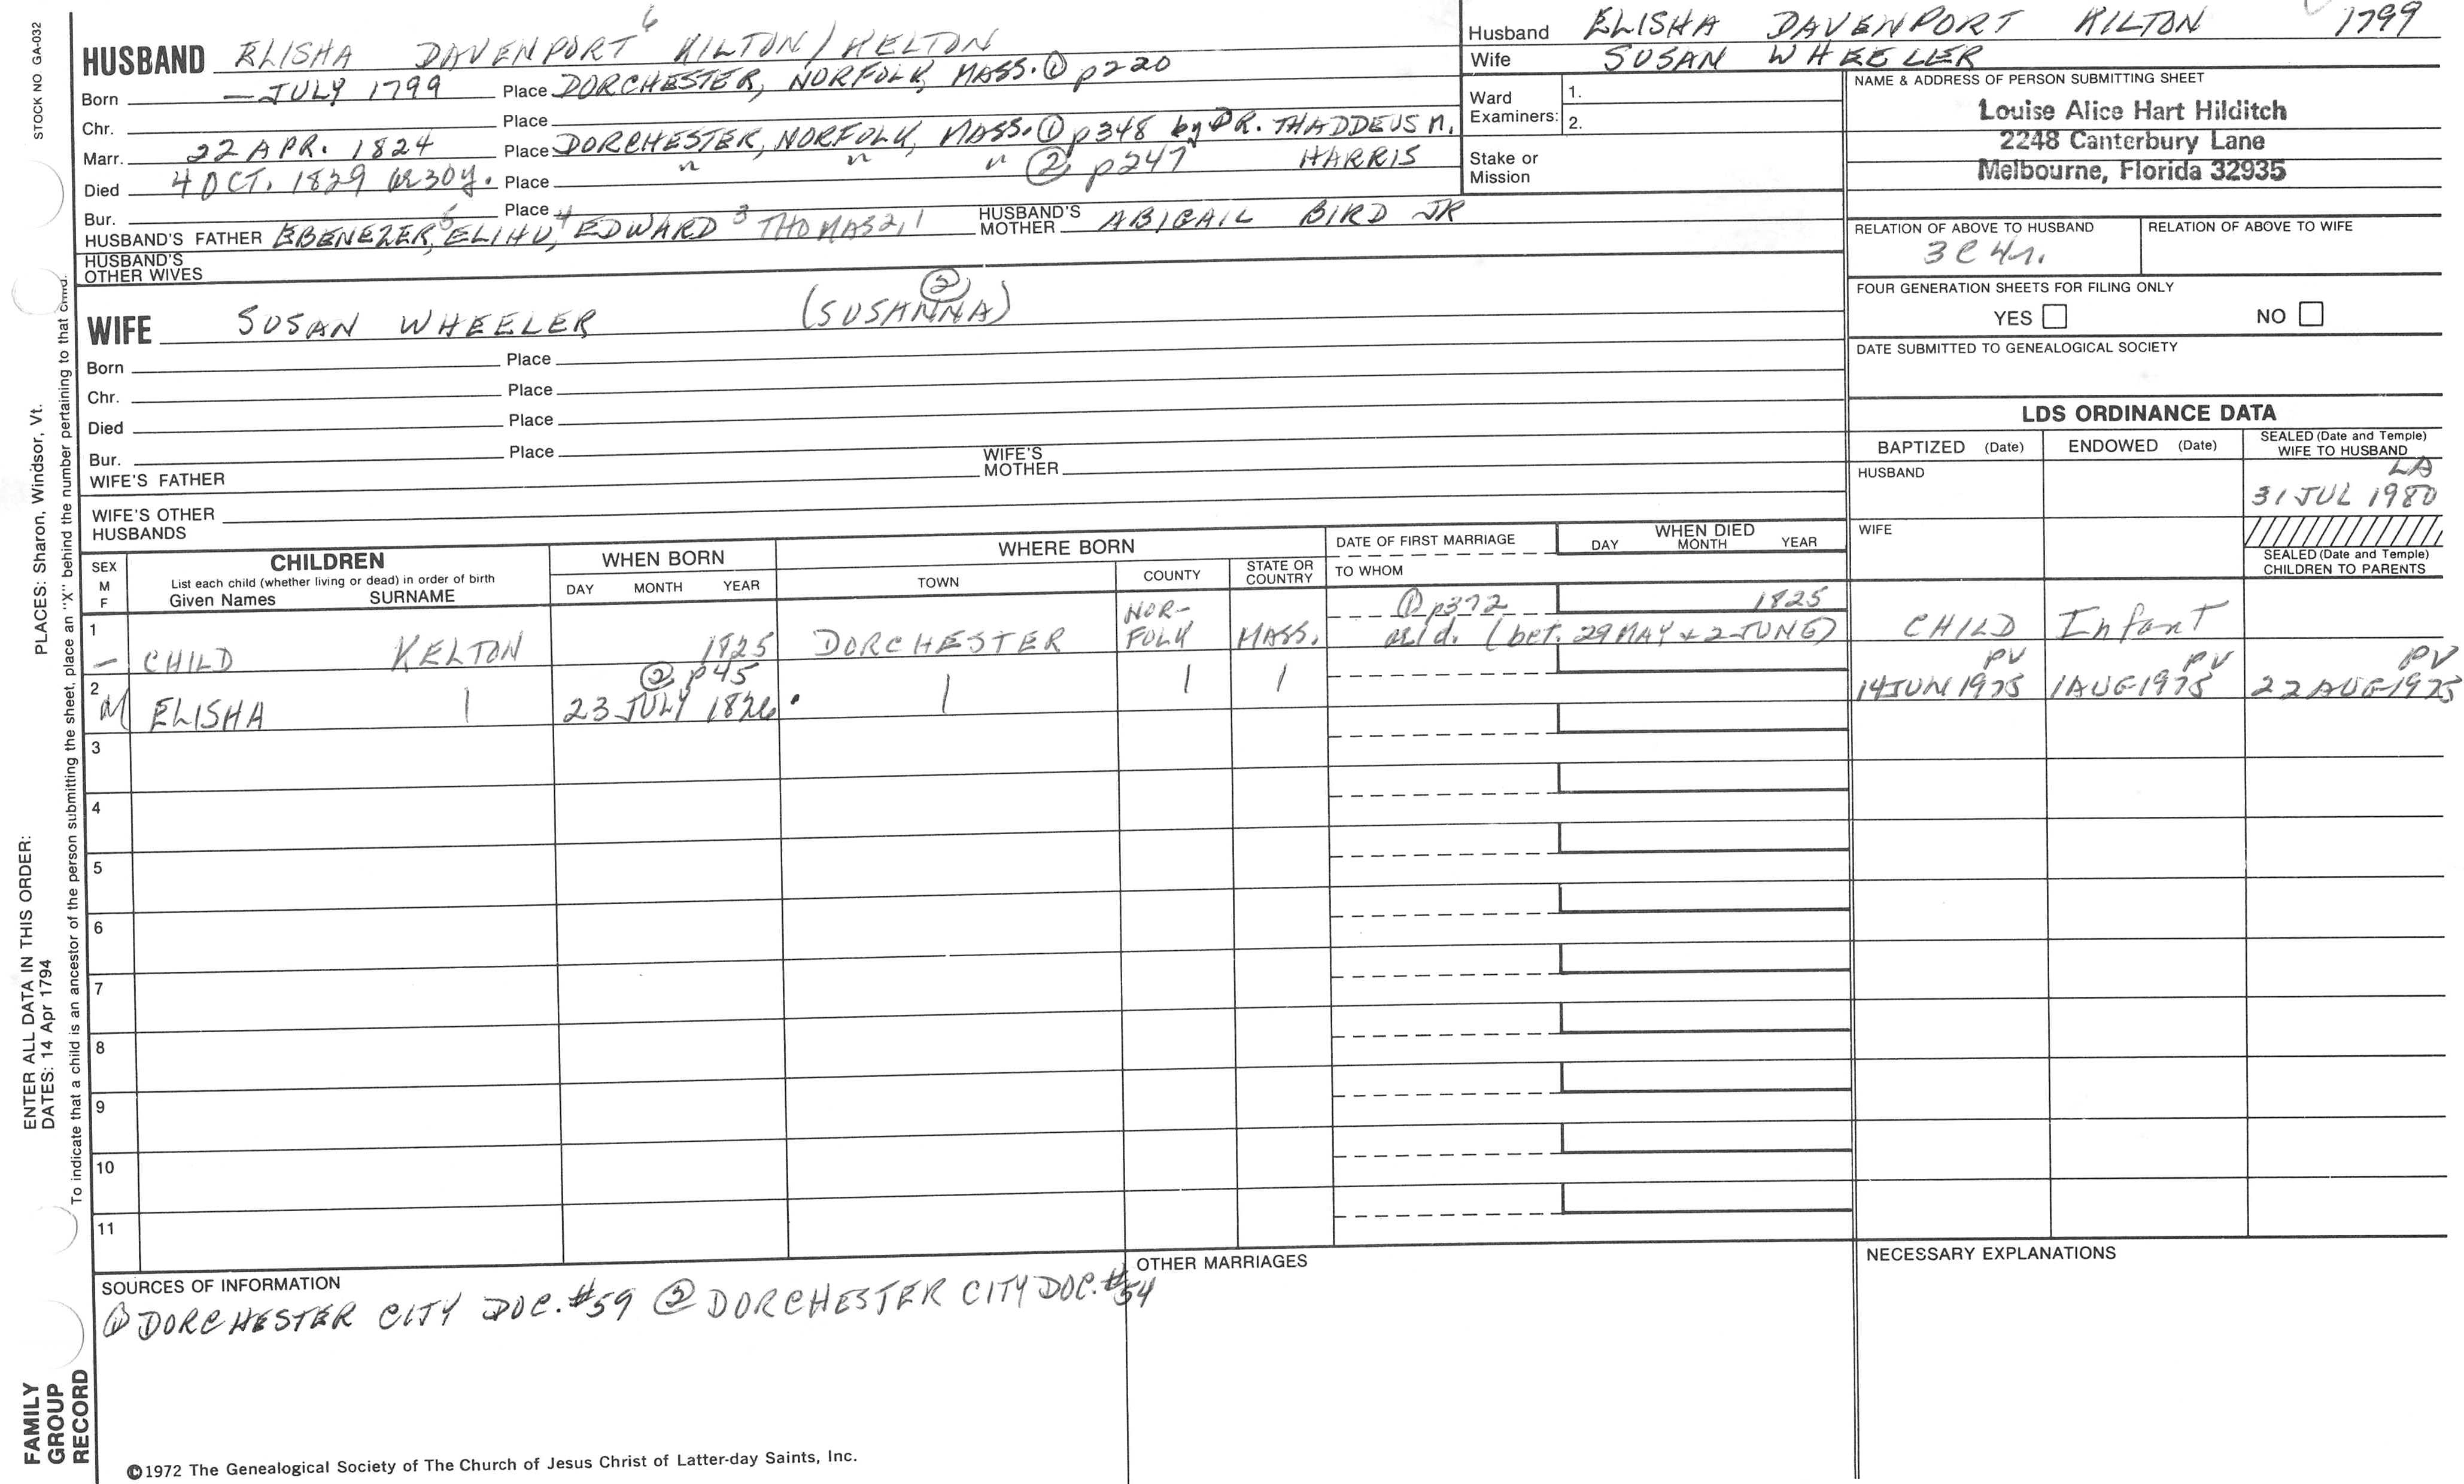 STOCK NO GA-032
HUSBAND ELISHA DAVENPORT 6 KILTON/KELTON
Born — JULY 1799 Place DORCHESTER, NORFOLK, MASS. ① p220
Chr. Place
Marr. 22 APR. 1824 Place DORCHESTER, NORFOLK, MASS. ① p348 by DR. THADDEUS M.
HARRIS
Died 4 OCT. 1829 æ30y. Place " " " ② p247
Bur. Place
HUSBAND'S FATHER EBENEZER,5 ELIHU,4 EDWARD 3 THOMAS2,1 HUSBAND'S MOTHER ABIGAIL BIRD JR
HUSBAND'S OTHER WIVES
WIFE SUSAN WHEELER (SUSANNA) ②
Born Place
Chr. Place
Died Place
Bur. Place
WIFE'S FATHER WIFE'S MOTHER
WIFE'S OTHER HUSBANDS
Husband ELISHA DAVENPORT KILTON 1799
Wife SUSAN WHEELER
Ward Examiners: 1.
2.
Stake or Mission
NAME & ADDRESS OF PERSON SUBMITTING SHEET
Louise Alice Hart Hilditch
2248 Canterbury Lane
Melbourne, Florida 32935
RELATION OF ABOVE TO HUSBAND RELATION OF ABOVE TO WIFE
3C4r.
FOUR GENERATION SHEETS FOR FILING ONLY
YES NO
DATE SUBMITTED TO GENEALOGICAL SOCIETY
LDS ORDINANCE DATA
BAPTIZED (Date) ENDOWED (Date) SEALED (Date and Temple) WIFE TO HUSBAND
HUSBAND LA
31 JUL 1980
WIFE
SEALED (Date and Temple) CHILDREN TO PARENTS
SEX M F
CHILDREN
List each child (whether living or dead) in order of birth
Given Names SURNAME
WHEN BORN
DAY MONTH YEAR
WHERE BORN
TOWN COUNTY STATE OR COUNTRY
DATE OF FIRST MARRIAGE
TO WHOM
WHEN DIED
DAY MONTH YEAR
1 — CHILD KELTON 1825 DORCHESTER NOR-FOLK MASS. ① p372 1825
(bet. 29 MAY & 2 JUNE) CHILD Infant
2 M ELISHA | ② p45 23 JULY 1826. | | | PV 14 JUN 1975 PV 1 AUG 1975 PV 22 AUG 1975
3
4
5
6
7
8
9
10
11
SOURCES OF INFORMATION
① DORCHESTER CITY DOC. #59 ② DORCHESTER CITY DOC. #54
OTHER MARRIAGES
NECESSARY EXPLANATIONS
©1972 The Genealogical Society of The Church of Jesus Christ of Latter-day Saints, Inc.
PLACES: Sharon, Windsor, Vt.
ENTER ALL DATA IN THIS ORDER:
DATES: 14 Apr 1794
To indicate that a child is an ancestor of the person submitting the sheet, place an "X" behind the number pertaining to that child.
FAMILY
GROUP
RECORD